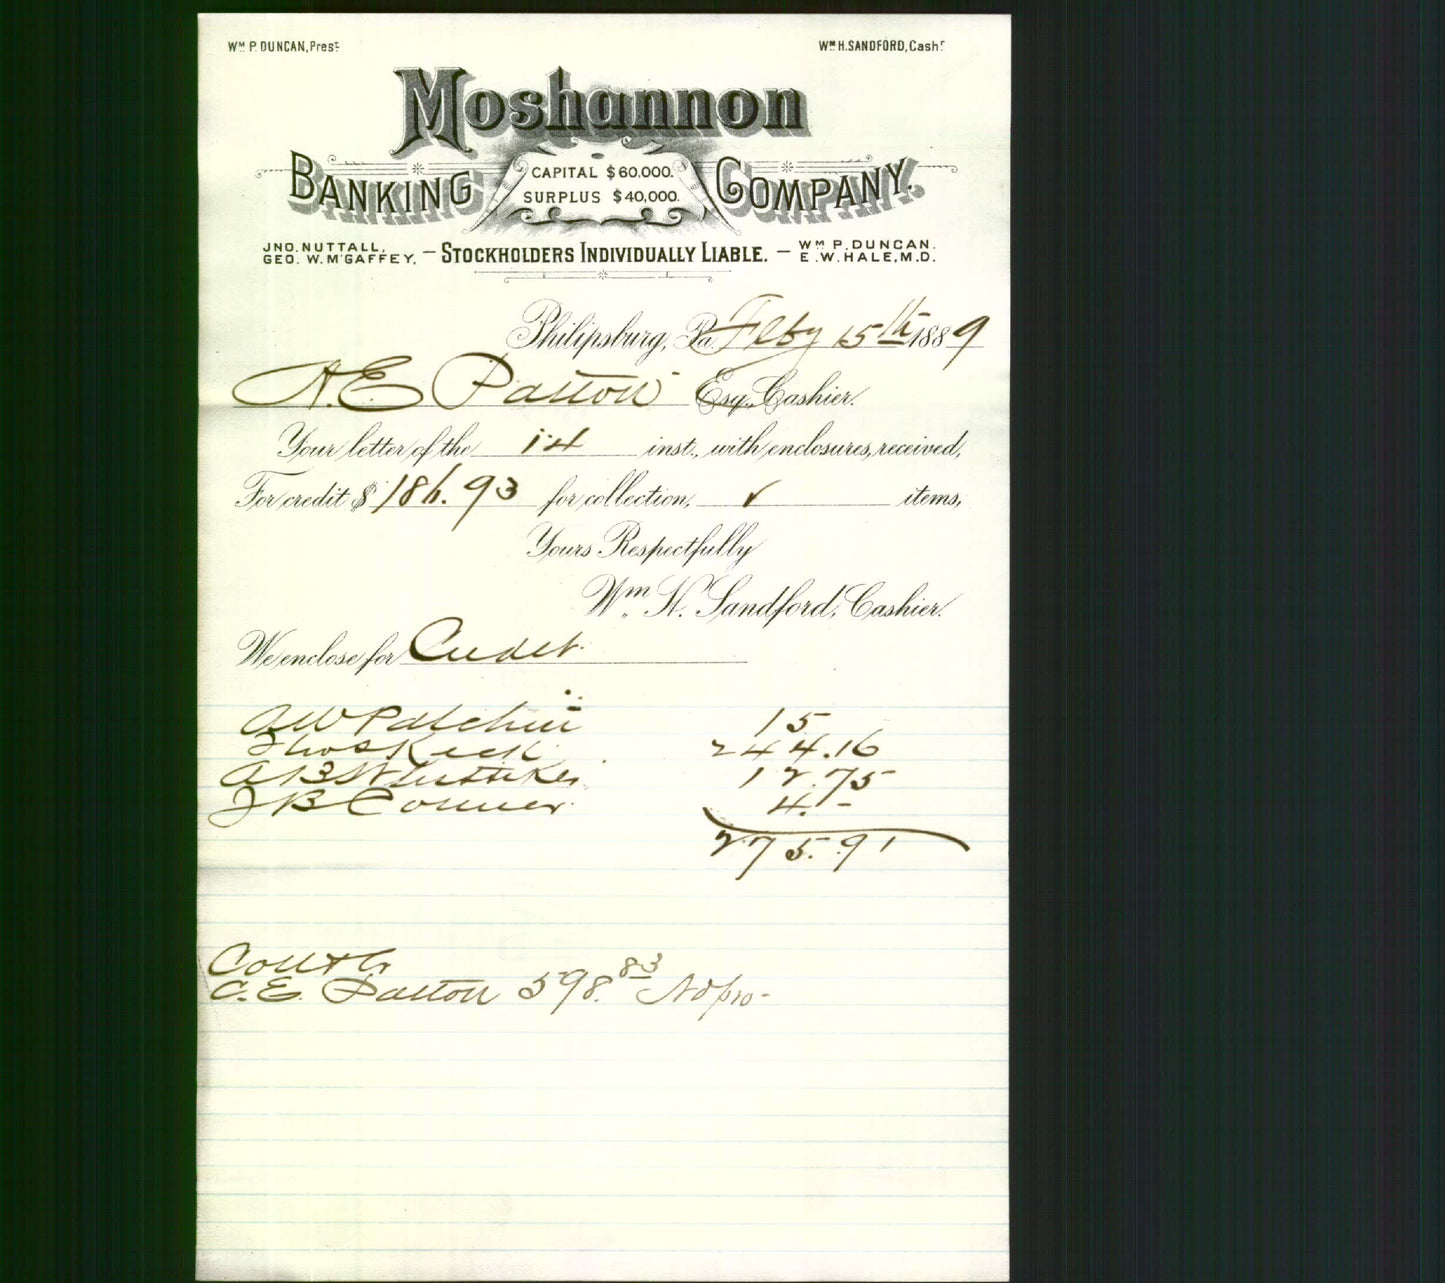 Wm. P. DUNCAN, Prest.
Wm. H. SANDFORD, Cashr.
Moshannon
BANKING COMPANY.
CAPITAL $60,000.
SURPLUS $40,000.
JNO. NUTTALL,
GEO. W. McGAFFEY,
— STOCKHOLDERS INDIVIDUALLY LIABLE. —
Wm. P. DUNCAN.
E. W. HALE, M.D.
Philipsburg, Pa. Feby 15th 1889
A. E. Patton Esq., Cashier.
Your letter of the 14 inst., with enclosures, received,
For credit $186.93 for collection, ✓ items,
Yours Respectfully
Wm. H. Sandford, Cashier.
We enclose for Credit
A W Patchin 15
Thos 244.16
A B Whittaker 12.75
J B Conner 4.-
275.91
A. E. Patton 598.83 No pro-